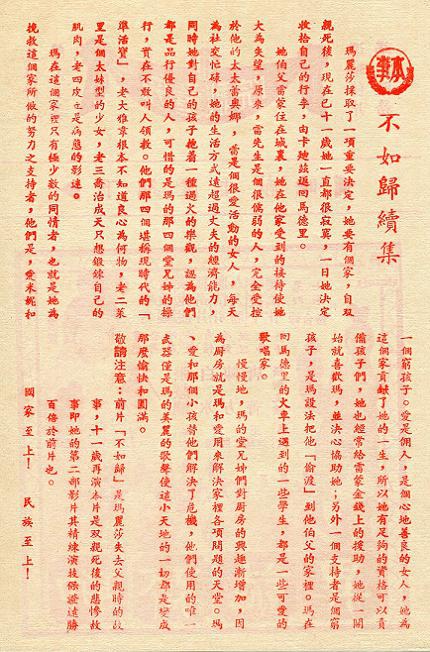 本事
不如歸續集
瑪麗莎採取了一項重要決定,她要有個家,自双
親死後,現在已十一歲她一直都很寂寞,一日她決定
收拾自己的行李,由卡地茲返回馬德里。
她伯父雷蒙住在城裏,她在他家受到的接待使她
大為失望,原來,雷先生是個很懦弱的人,完全受控
於他的太太蕾奧娜,雷是個很愛活動的女人,每天
為社交忙碌,她的生活方式遠超過丈夫的經濟能力,
同時她對自己的孩子抱着一種過火的樂觀,認為他們
都是品行優良的人,可惜的是瑪的那四個堂兄妹的操
行,實在不敢叫人領教。他們那四個堪稱現時代的「
準活寶」,老大雅章根本不知道良心為何物,老二萊
里是個太妹型的少女,老三喬治成天只想鍛鍊自己的
肌肉,老四皮主是病態的影迷。
瑪在這個家裡只有少數的同情者,也就是她為
挽救這個家所做的努力之支持者,他們是,愛米妮和
一個窮孩子。愛是佣人,是個心地善良的女人,她為
這個家貢獻了她的一生,所以她有足夠的資格可以責
備孩子們,她也經常給雷蒙金錢上的援助,她從一開
始就喜歡瑪,並決心協助她;另外一個支持者是個窮
孩子,是瑪設法把他「偷渡」到他伯父的家裡。瑪在
回馬德里的火車上遇到的一些學生,都是一些可愛的
歌唱家。
慢慢地,瑪的堂兄姊們對厨房的興趣漸增加,因
為厨房就是瑪和愛用來解決家裡各項問題的天堂。瑪
、愛和那個小孩替他們解決了危機,他們使用的唯一
武器僅是瑪的美麗的歌聲使這小天地的一切都是變成
那麼愉快和圓滿。
敬請注意:前片「不如歸」是瑪麗莎失去父親時的故
事,十一歲再演本片是双親死後的悲慘故
事即她的第二部影片其精練演技保證遠勝
百倍於前片也。
國家至上! 民族至上!